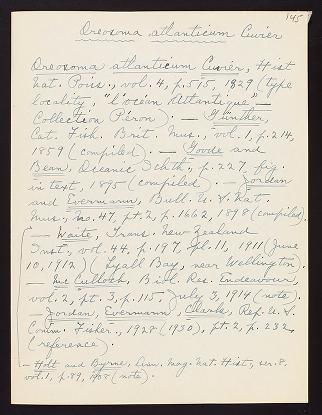 145
Oreosoma atlanticum Cuvier
Oreosoma atlanticum Cuvier, Hist
Nat. Poiss., vol. 4, p. 515, 1829 (type
locality, "l'océan Atlantique" —
Collection Péron). — Günther,
Cat. Fish. Brit. Mus., vol. 1, p. 214,
1859 (compiled). — Goode and
Bean, Oceanic Ichth., p. 227, fig.
in text, 1895 (compiled). — Jordan
and Evermann, Bull. U. S. Nat.
Mus., no. 47, pt. 2, p. 1662, 1898 (compiled).
— Waite, Trans. New Zealand
Inst., vol. 44, p. 197, pl. 11, 1911 (June
10, 1912) (Lyall Bay, near Wellington).
— McCulloch, Biol. Res. Endeavour,
vol. 2, pt. 3, p. 115, July 3, 1914 (note).
— Jordan, Evermann, Clark, Rep. U. S.
Comm. Fisher., 1928 (1930), pt. 2, p. 232
(reference).
— Holt and Byrne, Ann. Mag. Nat. Hist., ser. 8,
vol. 1, p. 89, 1908 (note).